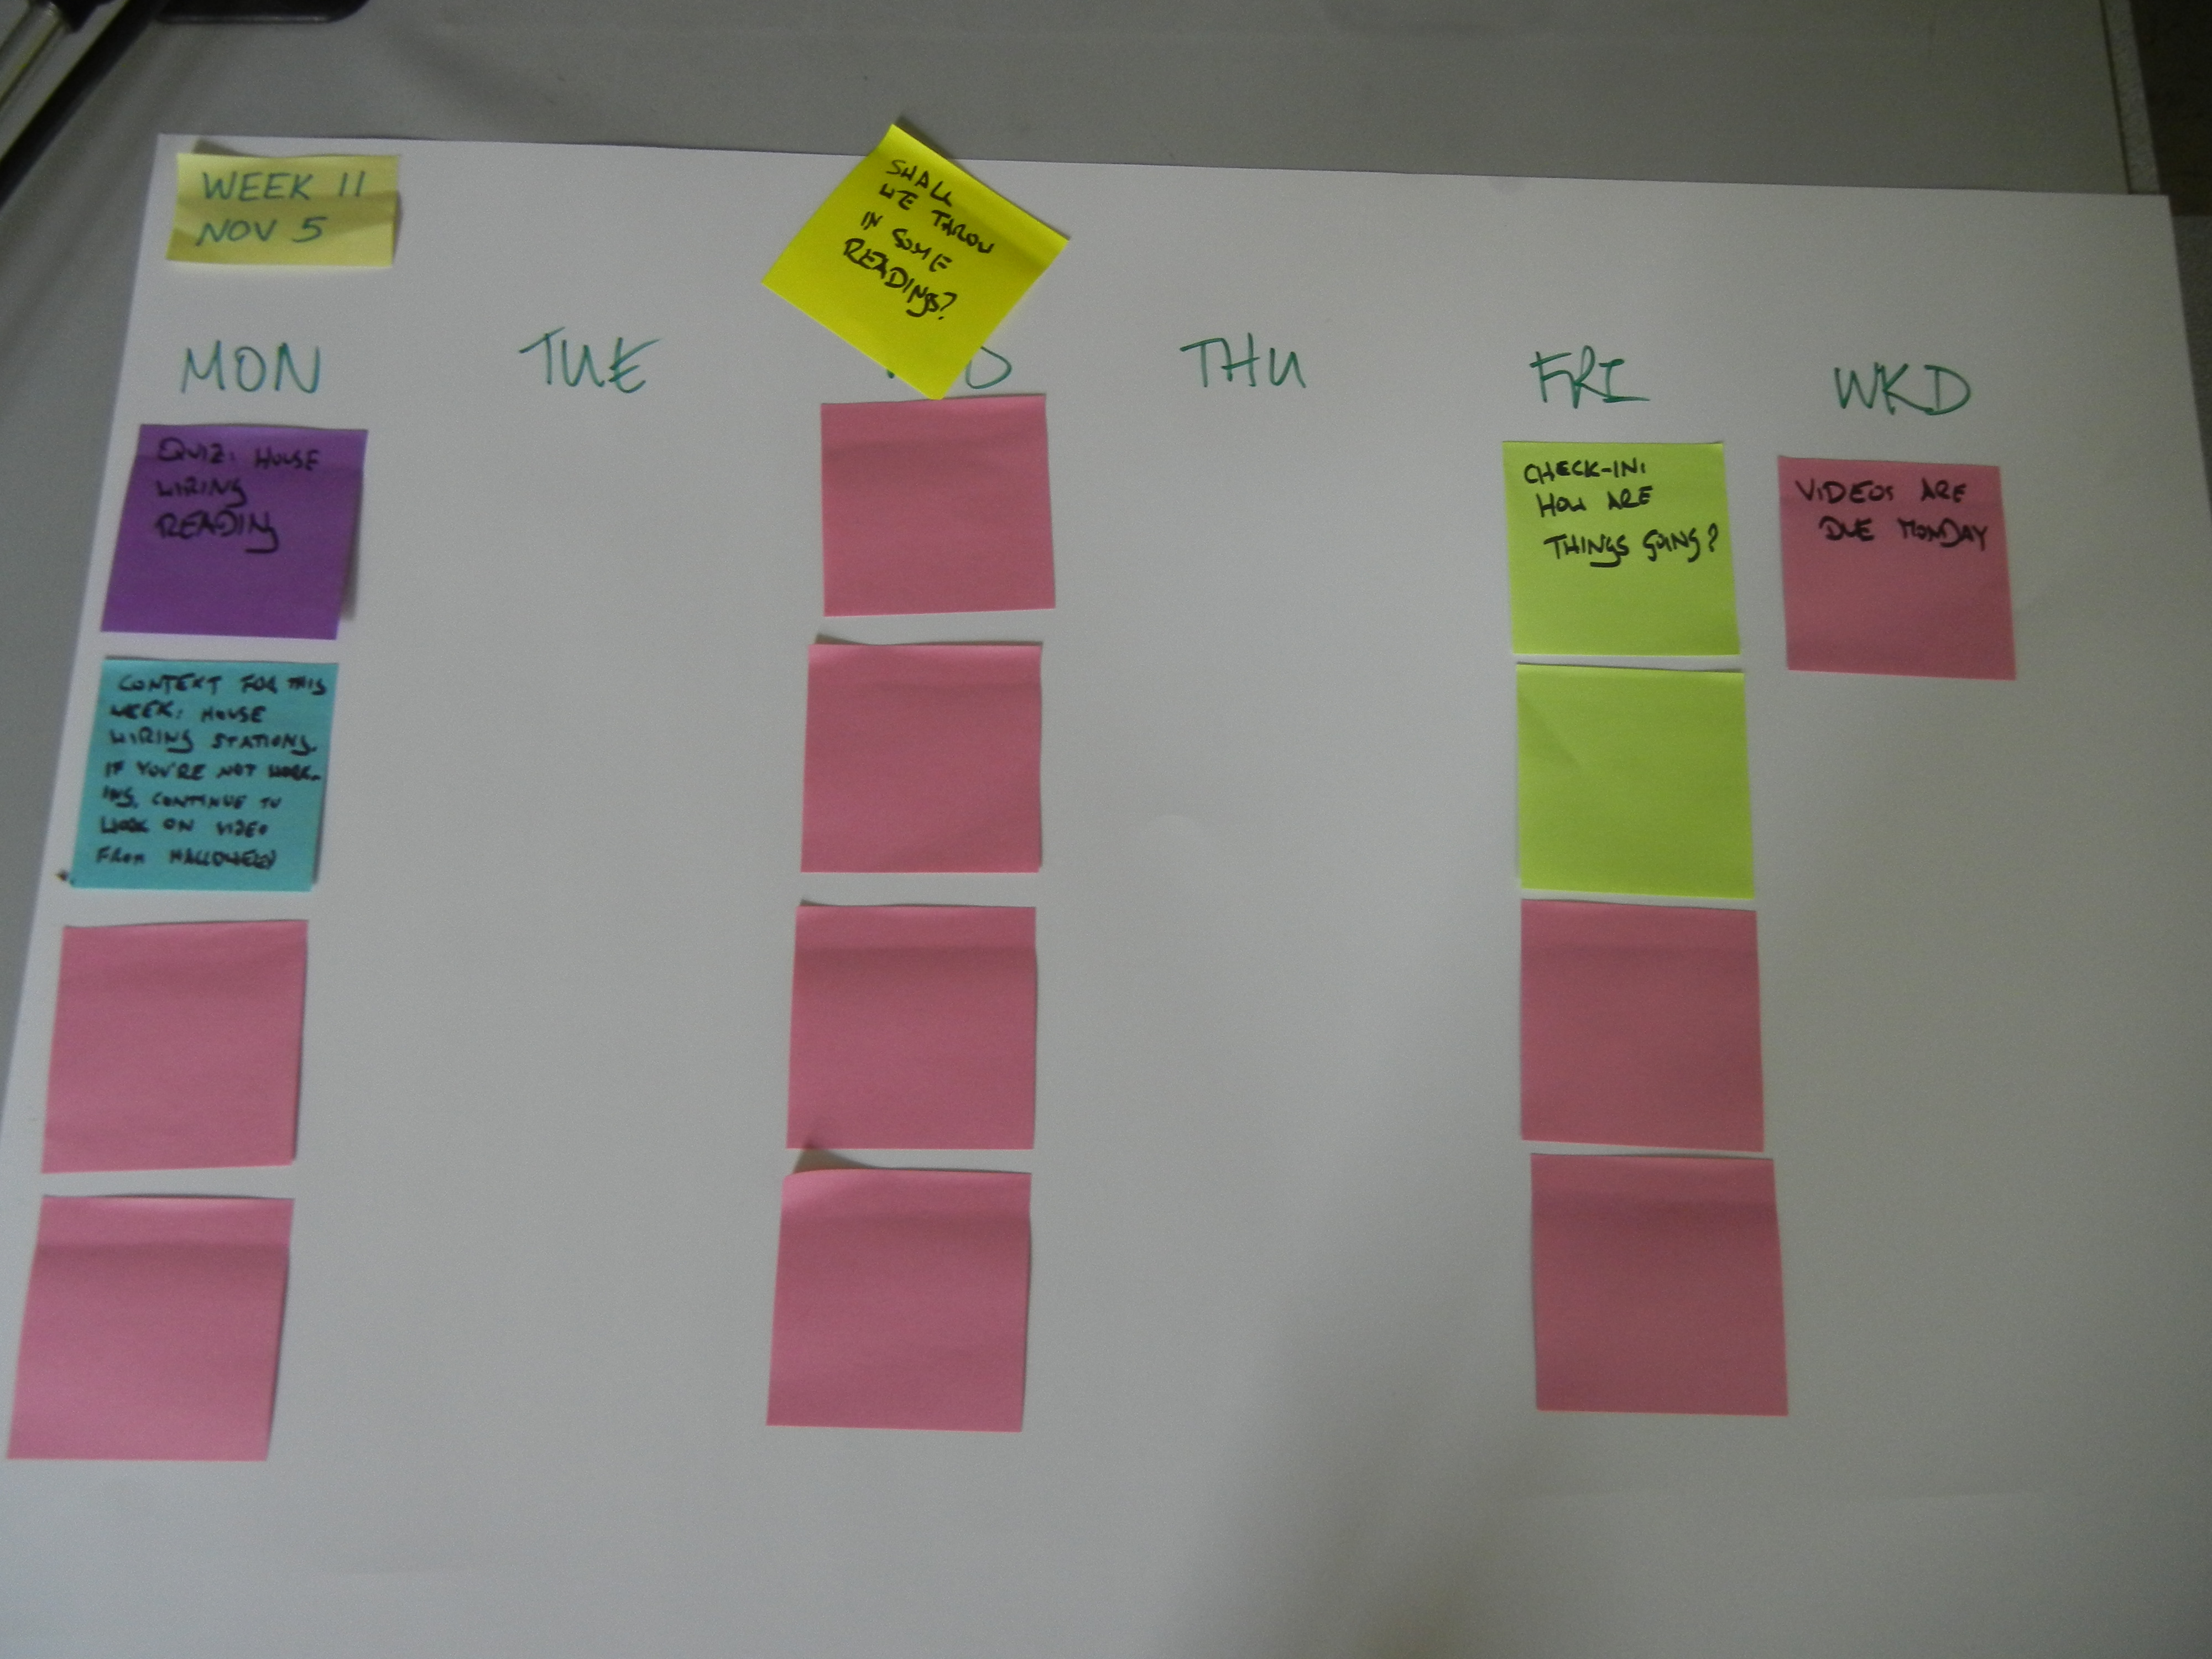 WEEK 11
NOV 5
SHALL
WE THROW
IN SOME
READINGS?
MON
TUE
D
THU
FRI
WKD
QUIZ: HOUSE
WIRING
READING
CONTEXT FOR THIS
WEEK: HOUSE
WIRING STATIONS.
IF YOU'RE NOT WORK-
ING, CONTINUE TO
WORK ON VIDEO
FROM HALLOWEEN
CHECK-IN:
HOW ARE
THINGS GOING?
VIDEOS ARE
DUE MONDAY